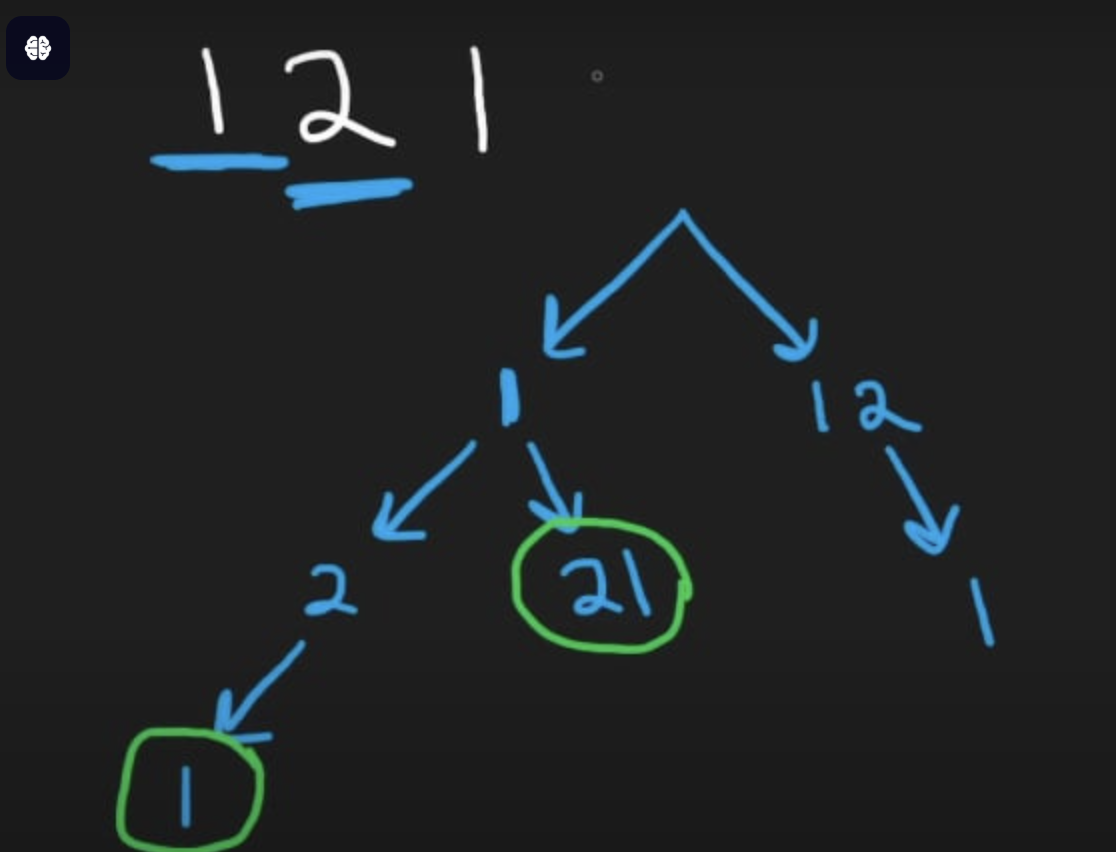 1 2 1
1
12
2
21
1
1